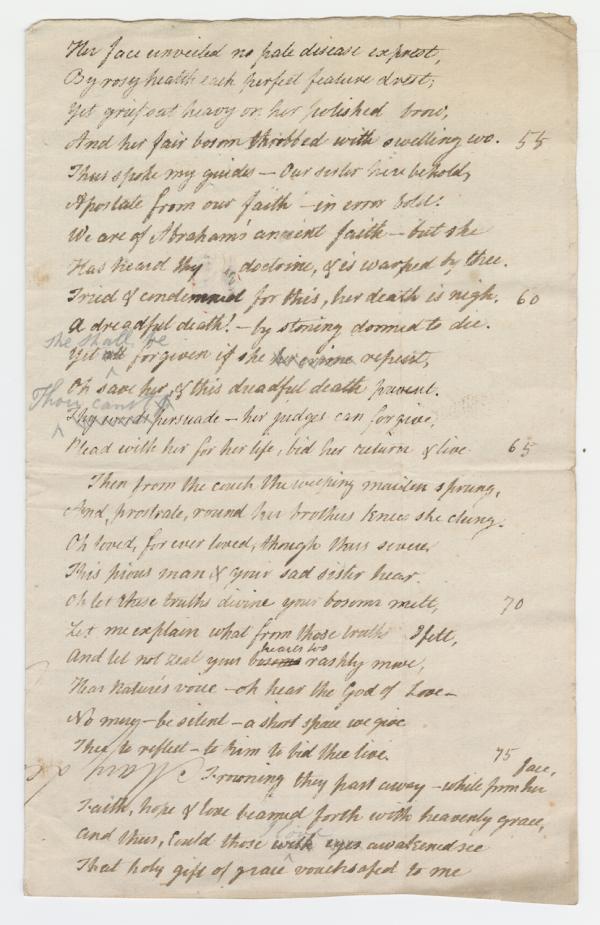 Her face unveiled no pale disease exprest,
By rosy health each perfect feature drest;
Yet grief sat heavy on her polished brow,
And her fair bosom throbbed with swelling wo. 55
Thus spoke my guides – Our sister here behold,
Apostate from our faith – in error bold!
We are of Abraham's ancient faith – but she
Has heard thy doctrine, & is warped by thee.
Tried & condemned for this, her death is nigh. 60
A dreadful death! – by stoning doomed to die.
she shall be
Yet all forgiven if she her crime repent,
Oh save her, & this dreadful death prevent.
Thou canst
Thy words persuade – her judges can forgive,
Plead with her for her life, bid her return & live 65
Then from the couch the weeping maiden sprung,
And, prostrate, round her brothers knees she clung.
Oh loved, for ever loved, though thus severe,
This pious man & your sad sister hear.
Oh let these truths divine your bosoms melt, 70
Let me explain what from those truths I felt,
hearts too
And let not zeal your bosoms rashly move,
Hear Nature's voice – oh hear the God of Love –
No mercy – be silent – a short space we give
Thee to reflect – to him to bid thee live. 75
face,
Frowning they past away – while from her
Faith, hope & love beamed forth with heavenly grace,
And thus, Could those with eyes awakened see
That holy gift of grace vouchsafed to me